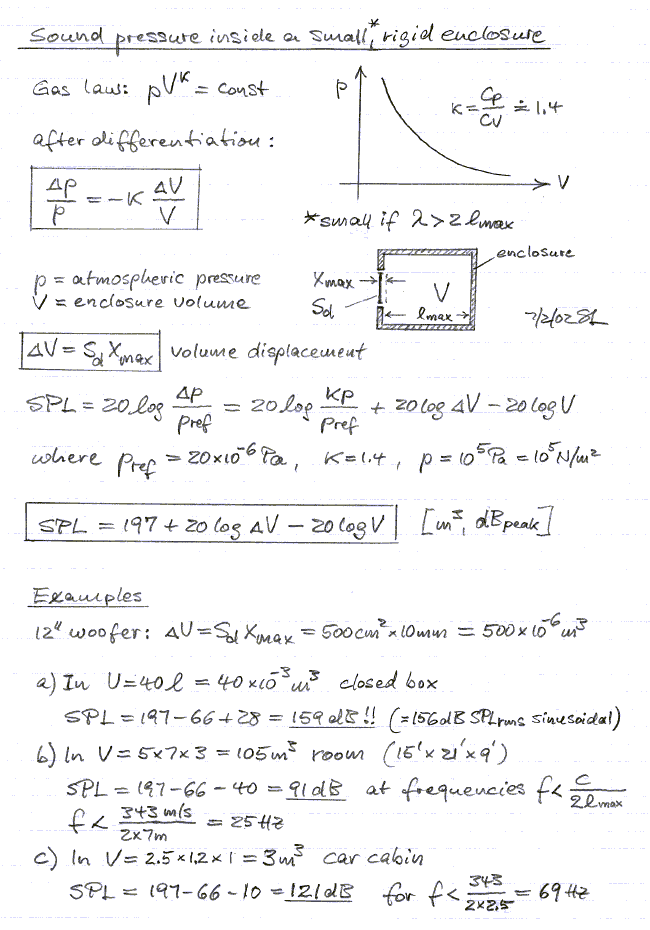 Sound pressure inside a small,* rigid enclosure
Gas law: pV^κ = const
p
κ = Cp/CV ≐ 1.4
after differentiation:
V
Δp/p = -κ ΔV/V
*small if λ > 2 lmax
enclosure
p = atmospheric pressure
V = enclosure volume
Xmax
Sd
V
lmax
7/2/02 SL
ΔV = Sd Xmax volume displacement
SPL = 20 log Δp/pref = 20 log κp/pref + 20 log ΔV - 20 log V
where pref = 20×10^-6 Pa, κ=1.4, p = 10^5 Pa = 10^5 N/m²
SPL = 197 + 20 log ΔV - 20 log V [m³, dBpeak]
Examples
12" woofer: ΔV = Sd Xmax = 500cm² × 10mm = 500×10^-6 m³
a) In V=40l = 40×10^-3 m³ closed box
SPL = 197-66+28 = 159dB!! (=156dB SPLrms sinusoidal)
b) In V = 5×7×3 = 105m³ room (15'×21'×9')
SPL = 197-66-40 = 91dB at frequencies f < c/2lmax
f < 343 m/s / 2×7m = 25Hz
c) In V = 2.5×1.2×1 = 3m³ car cabin
SPL = 197-66-10 = 121dB for f < 343/2×2.5 = 69Hz